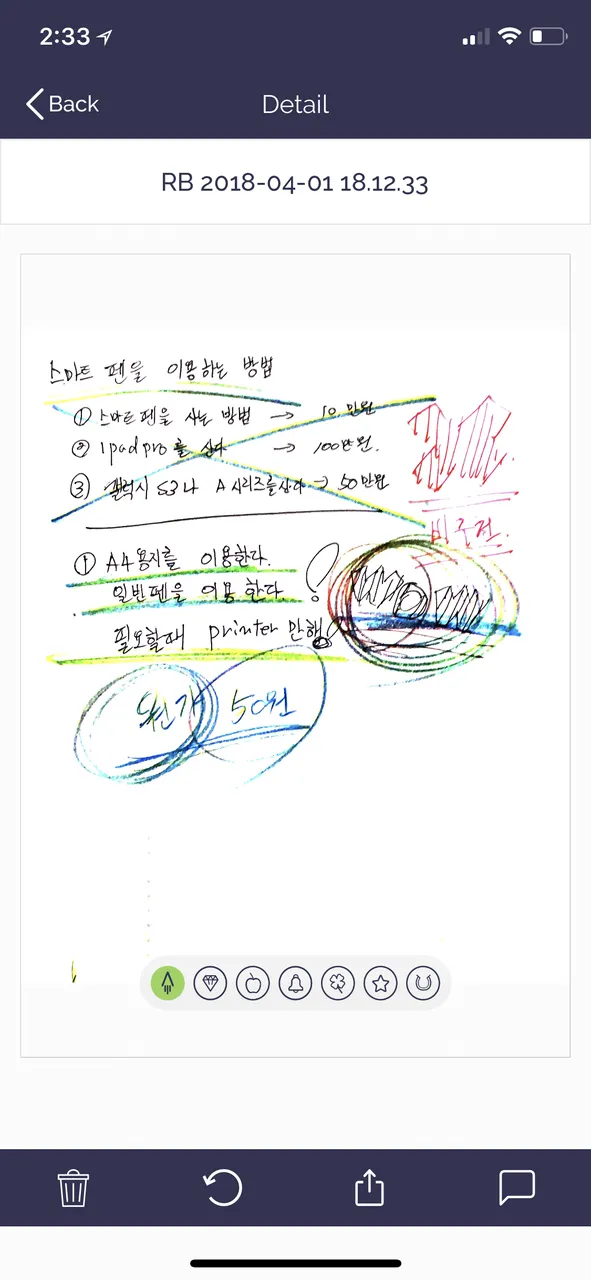 2:33
Back
Detail
RB 2018-04-01 18.12.33
스마트 펜을 이용하는 방법
① 스마트펜을 사는 방법 → 10만원
② ipad pro를 산다 → 100만원.
③ 갤럭시 S3나 A시리즈를산다 → 50만원
① A4용지를 이용한다.
일반펜을 이용 한다.
필요할때 printer 만해
원가 50원